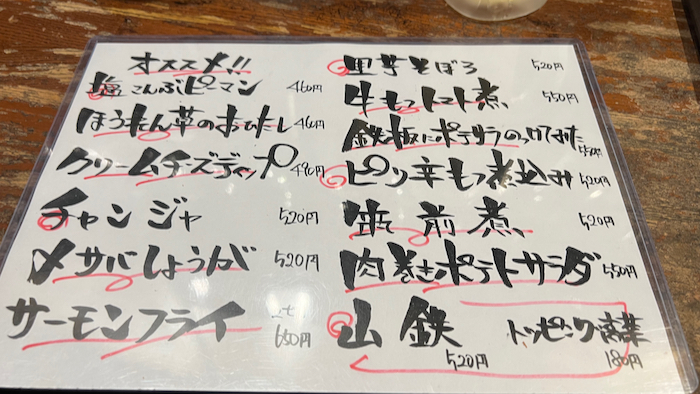 オススメ!!
塩こんぶピーマン 460円
ほうれん草のおひたし 460円
クリームチーズディップ 490円
チャンジャ 520円
〆サバしょうが 520円
サーモンフライ 2コ 650円
里芋そぼろ 520円
牛もつトマト煮 550円
鉄板にポテサラのっけてみた 550円
ピリ辛もつ煮込み 520円
筑前煮 520円
肉巻きポテトサラダ 550円
山鉄 520円
トッピング高菜 180円